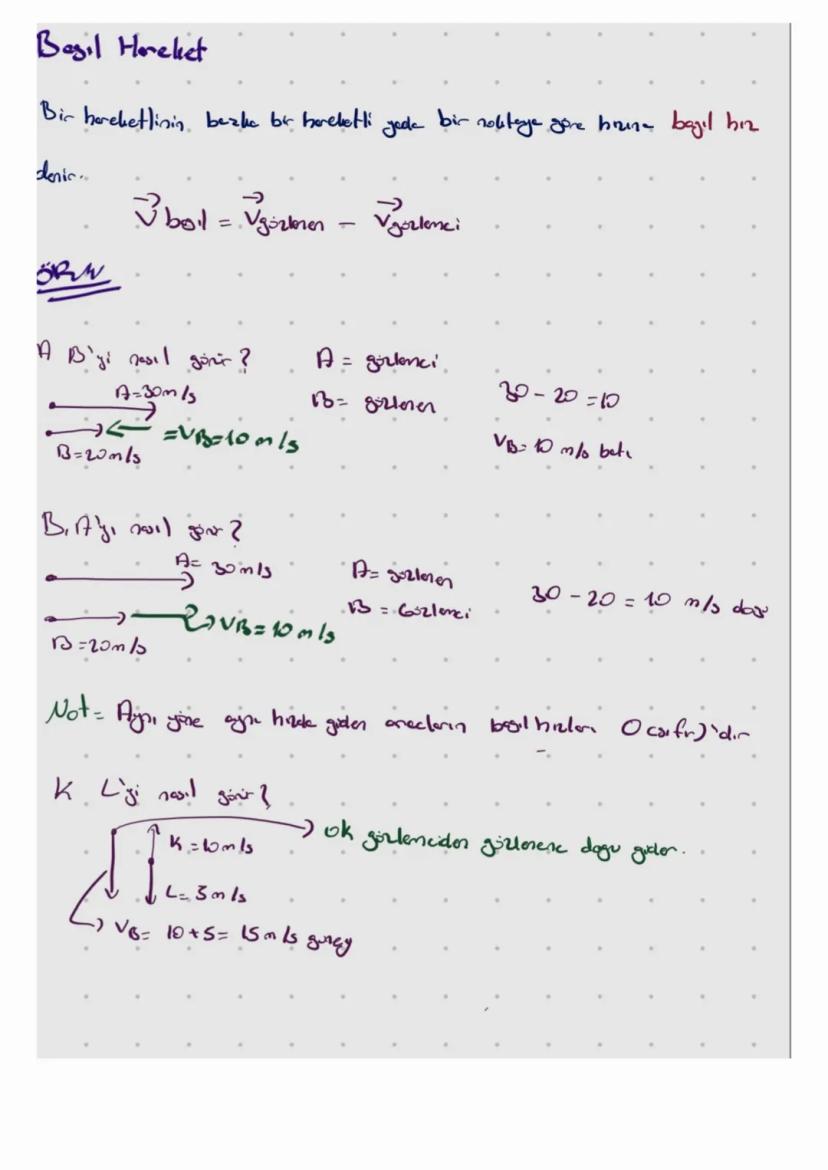 Bağıl Hareket
Bir hareketlinin başka bir hareketli yada bir noktaya göre hızına bağıl hız
denir.
V bağıl = Vgözlenen - Vgözlenci
ÖRN
A B'yi nasıl görür? A = gözlenci
A=30m/s B= gözlenen 30-20=10
=VB=10 m/s VB= 10 m/s batı
B=20m/s
B, A'yı nasıl görür?
A= 30m/s A= gözlenen
B = Gözlenci 30-20 = 10 m/s doğu
VB=10 m/s
B=20m/s
Not= Aynı yöne aynı hızda giden araçların bağıl hızları 0(sıfır)'dır
K L'yi nasıl görür?
ok gözlenciden gözlenene doğru gider.
K=10m/s
L=5m/s
VB= 10+5= 15m/s güney